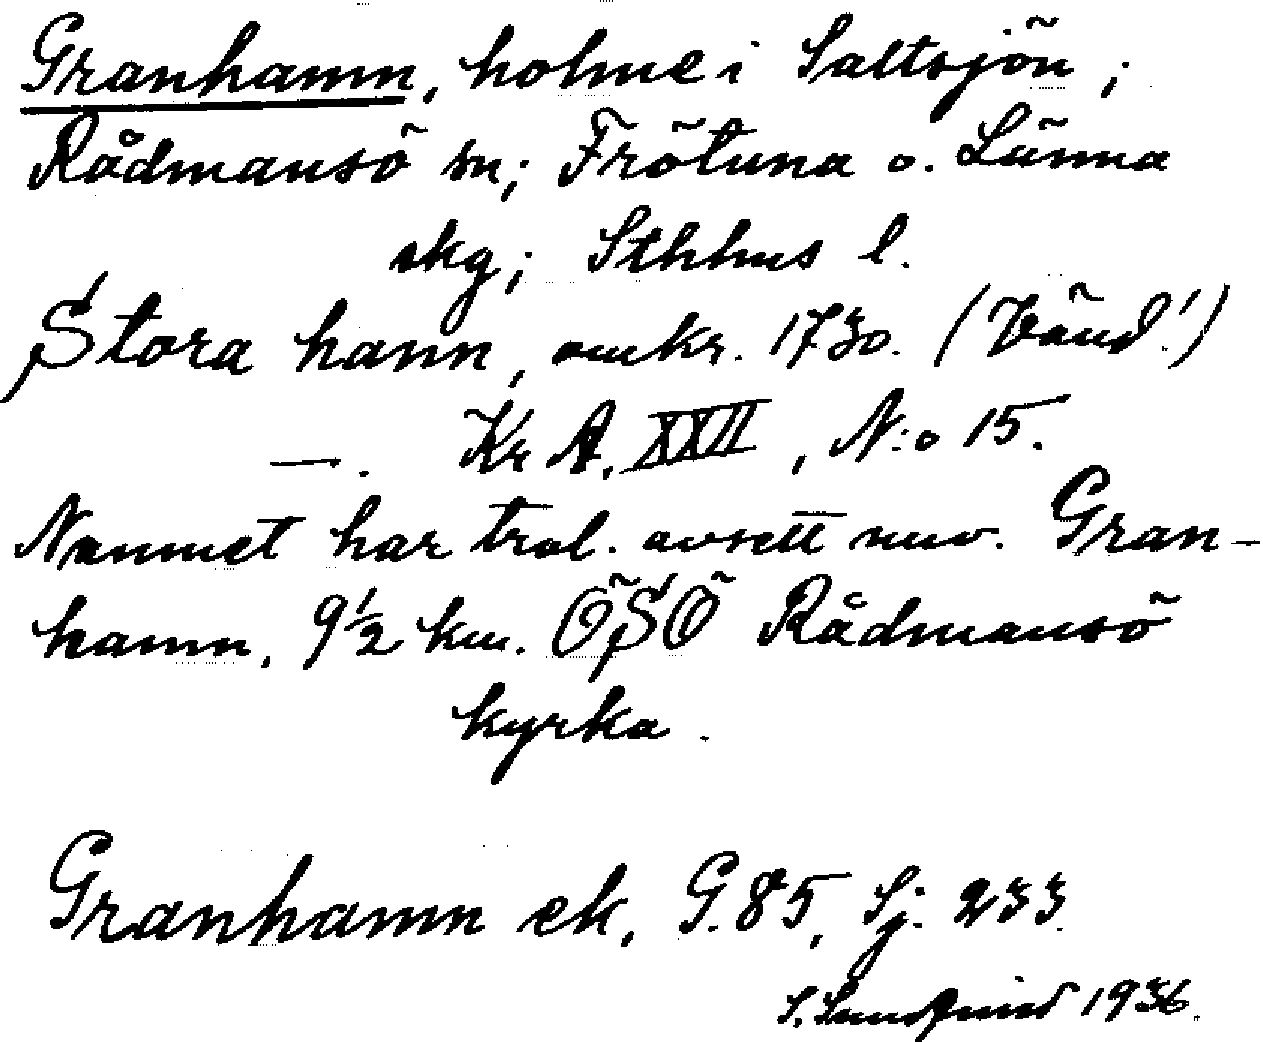 Granhamn, holme i Saltsjön;
Rådmansö sn; Frötuna o. Länna
skg; Sthhms l.
Stora hamn, omkr. 1730. (Vänd!)
—. Kr A. XXII, N:o 15.
Namnet har trol. avsett nuv. Gran-
hamn, 9½ km. ÖSÖ Rådmansö
kyrka.
Granhamn ek, G.85, Sj. 233.
S. Sundquist 1936.